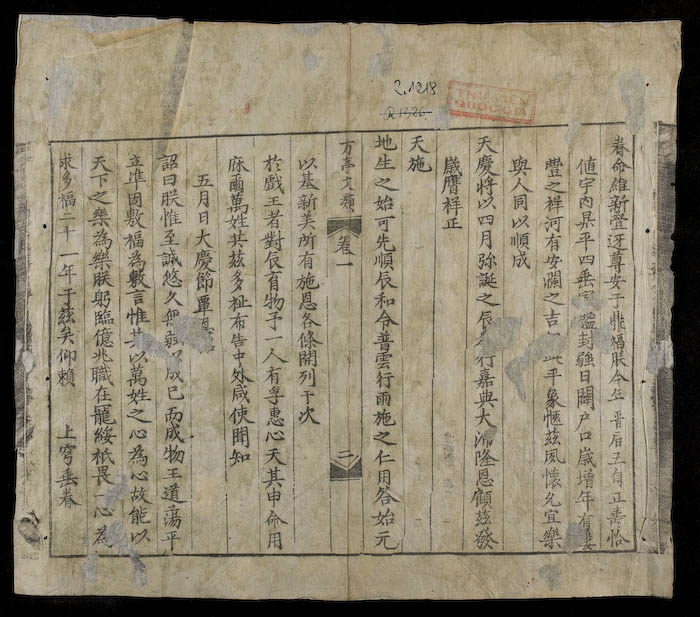 R.1218
R 1326
THƯ VIỆN
QUỐC GIA
眷命維新疊迓尊安于鼎福朕今年晋眉五旬正壽恰
值宇内杲平四垂寧謐封疆日闢户口歲增年有
豐之祥河有安瀾之吉平象愜茲夙懷允宜樂
與人同以順成
天慶將以四月弥誕之辰行嘉典大沛隆恩顧茲發
歲膺祥正
天施
地生之始可先順辰和令普雲行雨施之仁用答始元
方亭文類 卷一 二
以基新美所有施恩各條開列于次
於戲王者對辰育物予一人有孚惠心天其申命用
庥爾萬姓共茲多祉布告中外咸使聞知
五月日大慶節覃恩詔
詔曰朕惟至誠悠久無疆以成已而成物王道蕩平
立準因敷福為敷言惟其以萬姓之心為心故能以
天下之樂為樂朕躬臨億兆職在寵綏祇畏一心為
求多福二十一年于茲矣仰賴 上穹垂眷